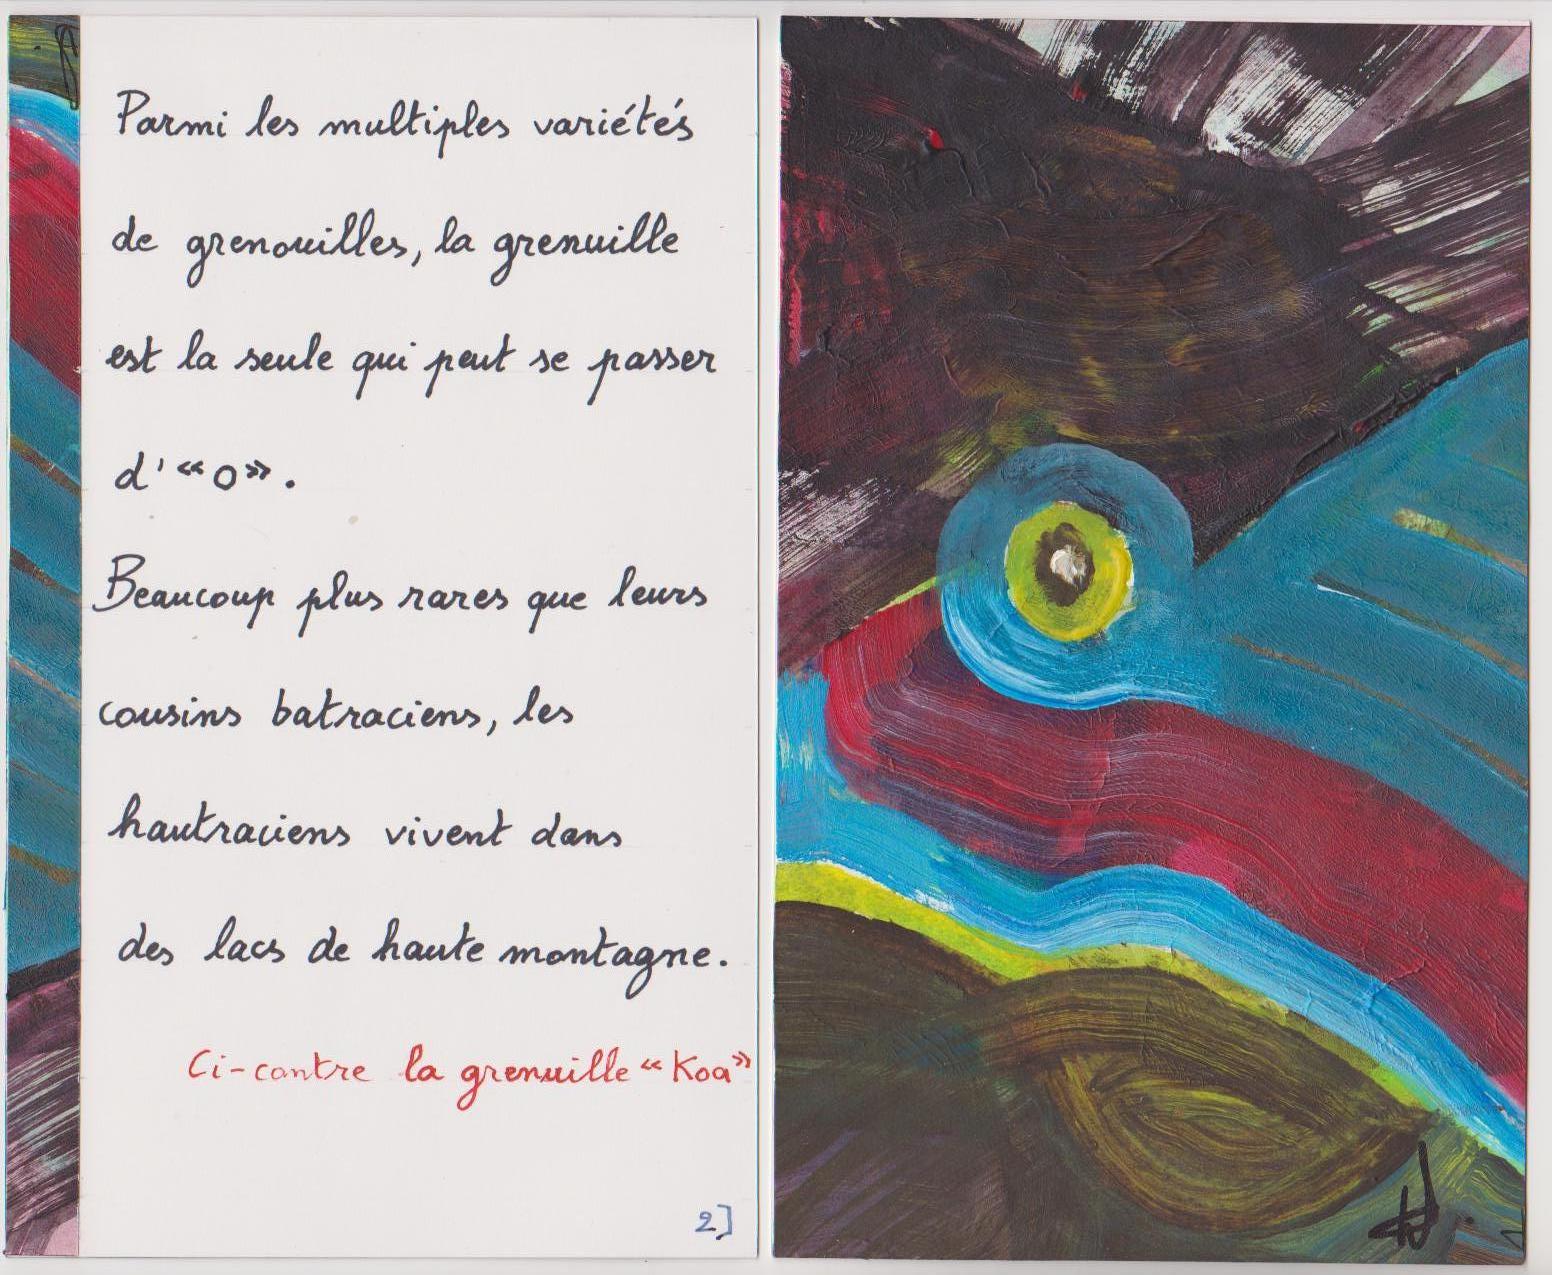 Parmi les multiples variétés
de grenouilles, la grenuille
est la seule qui peut se passer
d'«O».
Beaucoup plus rares que leurs
cousins batraciens, les
hautraciens vivent dans
des lacs de haute montagne.
Ci-contre la grenuille «Koa»
2]